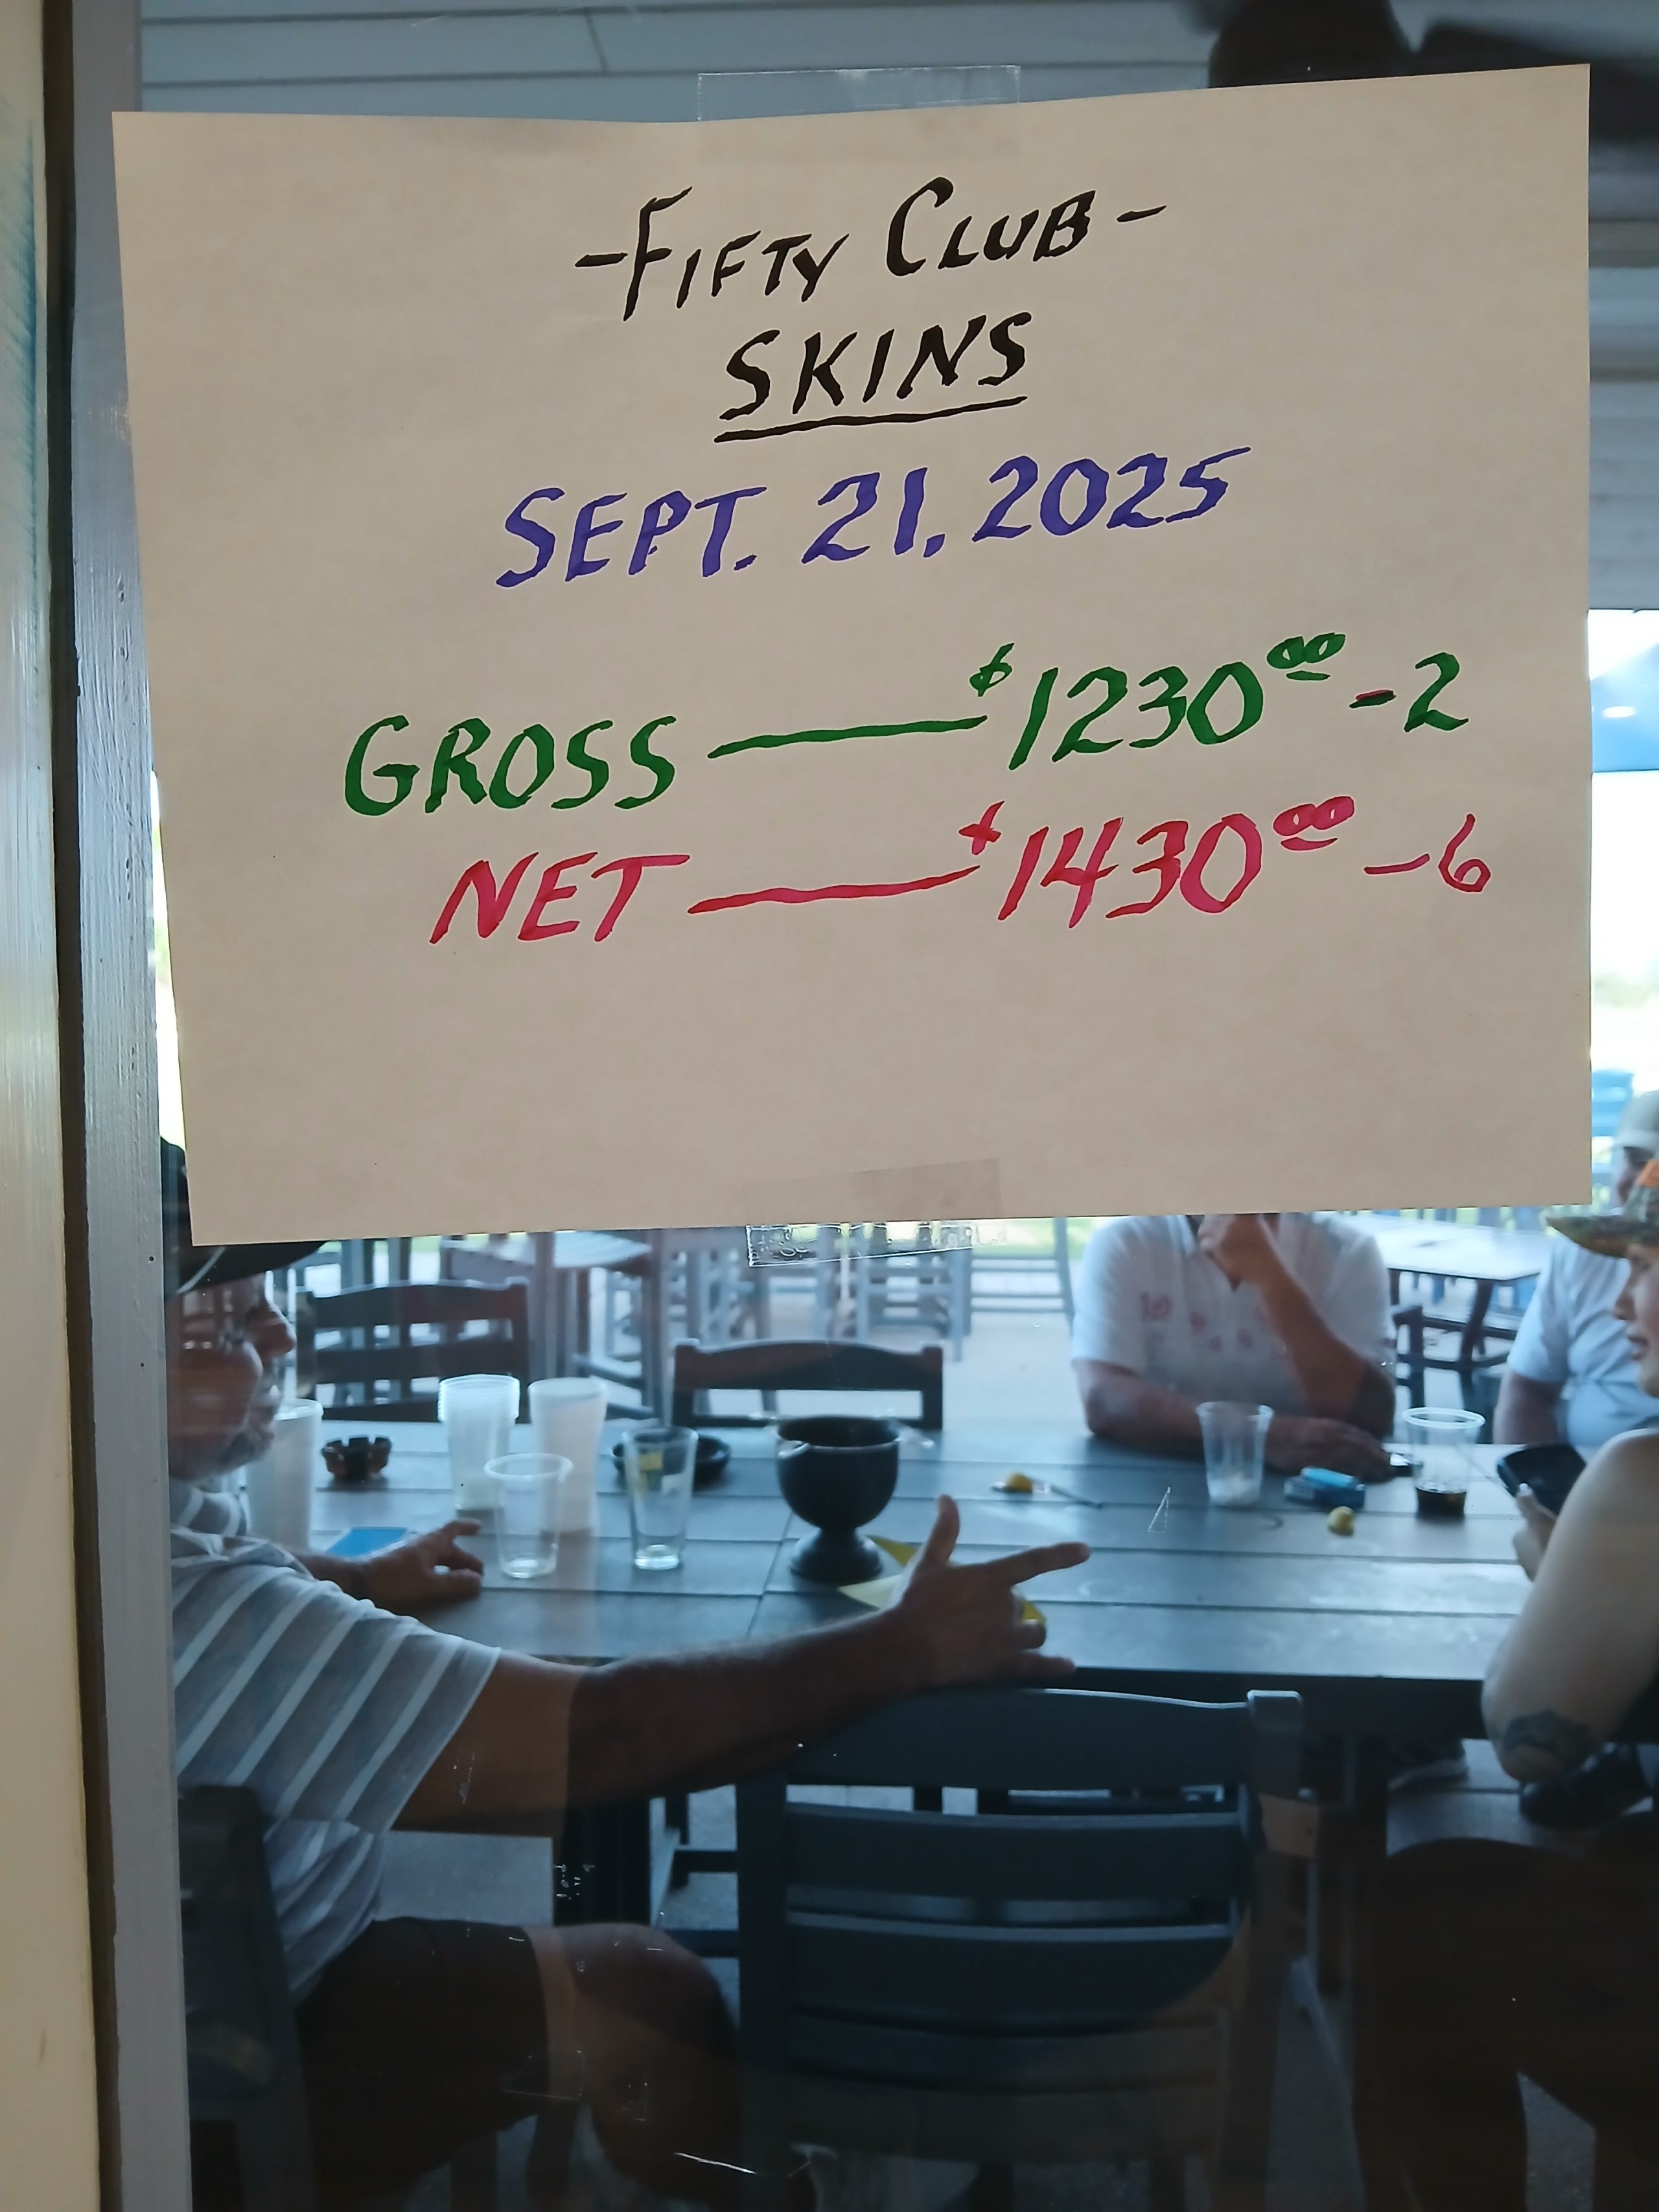 -FIFTY CLUB-
SKINS
SEPT. 21, 2025
GROSS — $1230.00 - 2
NET — $1430.00 - 6